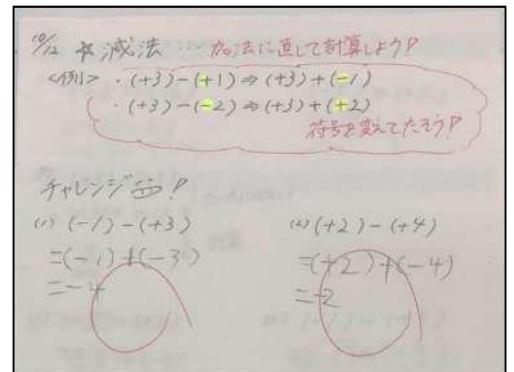 10/12 ☆減法…加法に直して計算しよう!
<例> ・(+3)-(+1)⇒(+3)+(-1)
・(+3)-(-2)⇒(+3)+(+2)
符号を変えてたそう!
チャレンジ!
(1) (-1)-(+3)
=(-1)+(-3)
=-4
(2) (+2)-(+4)
=(+2)+(-4)
=-2